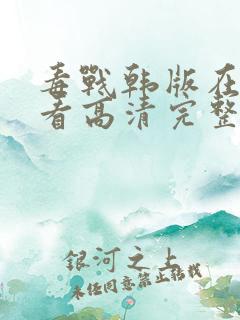 毒戰韩版在
看高清完整
銀河之上
未经同意禁止转载